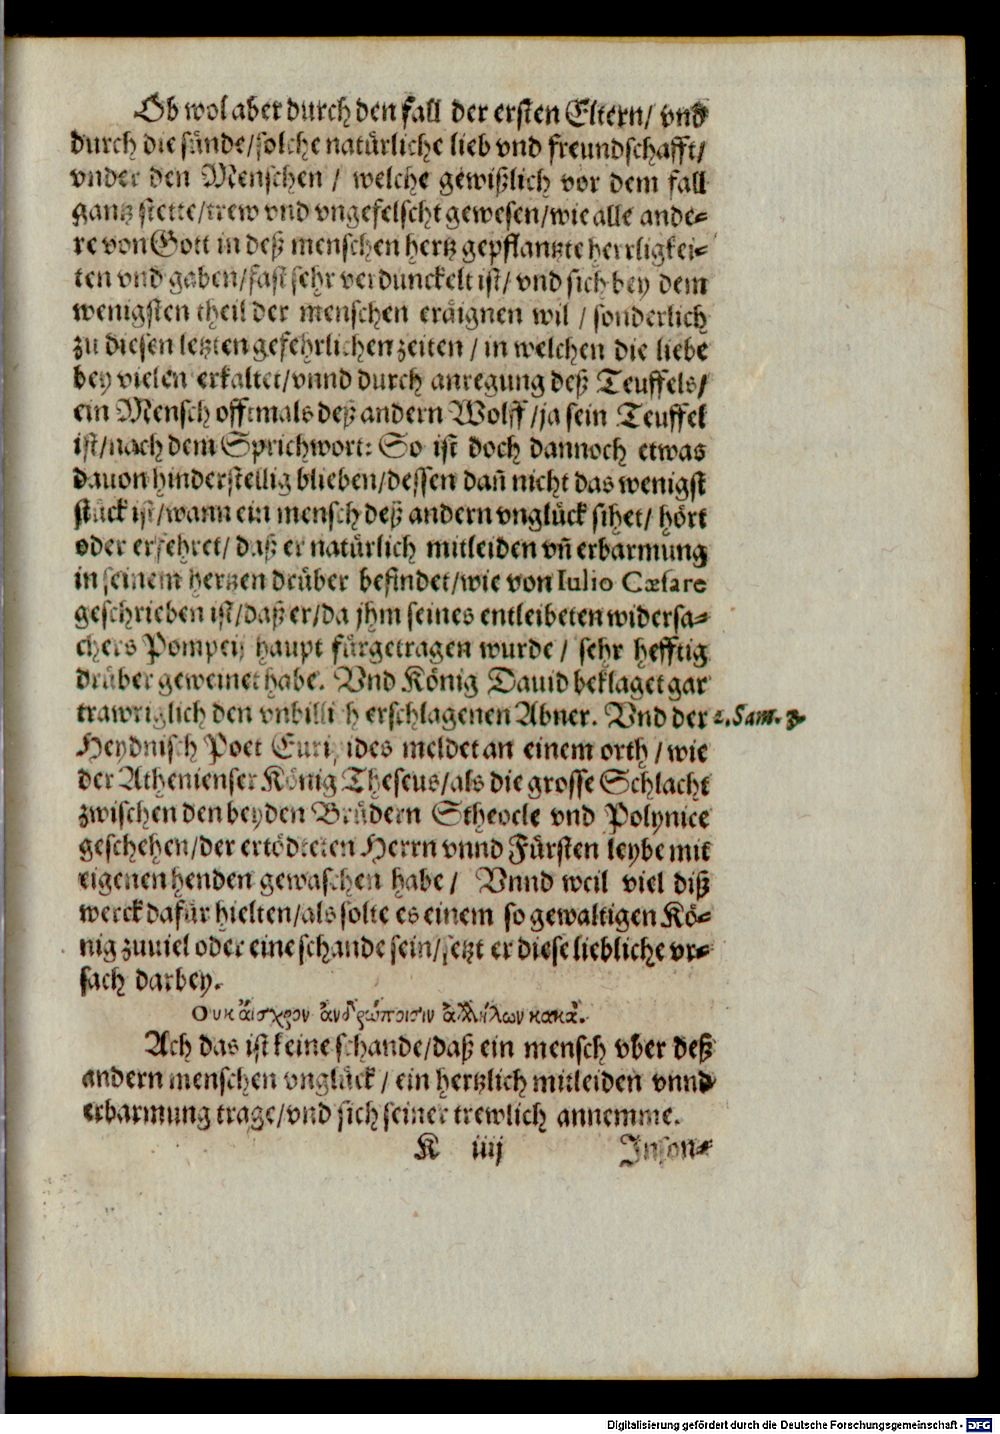 Ob wol aber durch den fall der ersten Eltern/ vnd
durch die sünde/solche natürliche lieb vnd freundschafft/
vnder den Menschen / welche gewißlich vor dem fall
gantz stette/trew vnd vngefelscht gewesen/wie alle ande-
re von Gott in deß menschen hertz gepflantzte herrligkei-
ten vnd gaben/fast sehr verdunckelt ist/ vnd sich bey dem
wenigsten theil der menschen eräignen wil / sonderlich
zu diesen letzten gefehrlichen zeiten / in welchen die liebe
bey vielen erkaltet/vnnd durch anregung deß Teuffels/
ein Mensch offtmals deß andern Wolff/ja sein Teuffel
ist/nach dem Sprichwort: So ist doch dannoch etwas
dauon hinderstellig blieben/dessen dañ nicht das wenigst
stück ist/wann ein mensch deß andern vnglück sihet/ hört
oder erfehret/ daß er natürlich mitleiden vñ erbarmung
in seinem hertzen drüber befindet/wie von Iulio Cæsare
geschrieben ist/daß er/da jhm seines entleibeten widersa-
chers Pompeij haupt fürgetragen wurde / sehr hefftig
drüber geweinet habe. Vnd König Dauid beklaget gar
trawriglich den vnbillich erschlagenen Abner. Vnd der
2. Sam. 3.
Heydnisch Poet Euripides meldet an einem orth / wie
der Athenienser König Theseus/als die grosse Schlacht
zwischen den beyden Brüdern Etheocle vnd Polynice
geschehen/der ertödteten Herrn vnnd Fürsten leybe mit
eigenen henden gewaschen habe / Vnnd weil viel diß
werck dafür hielten/als solte es einem so gewaltigen Kö-
nig zuuiel oder eine schande sein/setzt er diese liebliche vr-
sach darbey.
Ουκ ἄισχρον ἀνθρώποισιν ἀλλήλων κακὰ.
Ach das ist keine schande/daß ein mensch vber deß
andern menschen vnglück / ein hertzlich mitleiden vnnd
erbarmung trage/vnd sich seiner trewlich annemme.
K iiij Inson-
Digitalisierung gefördert durch die Deutsche Forschungsgemeinschaft - DFG